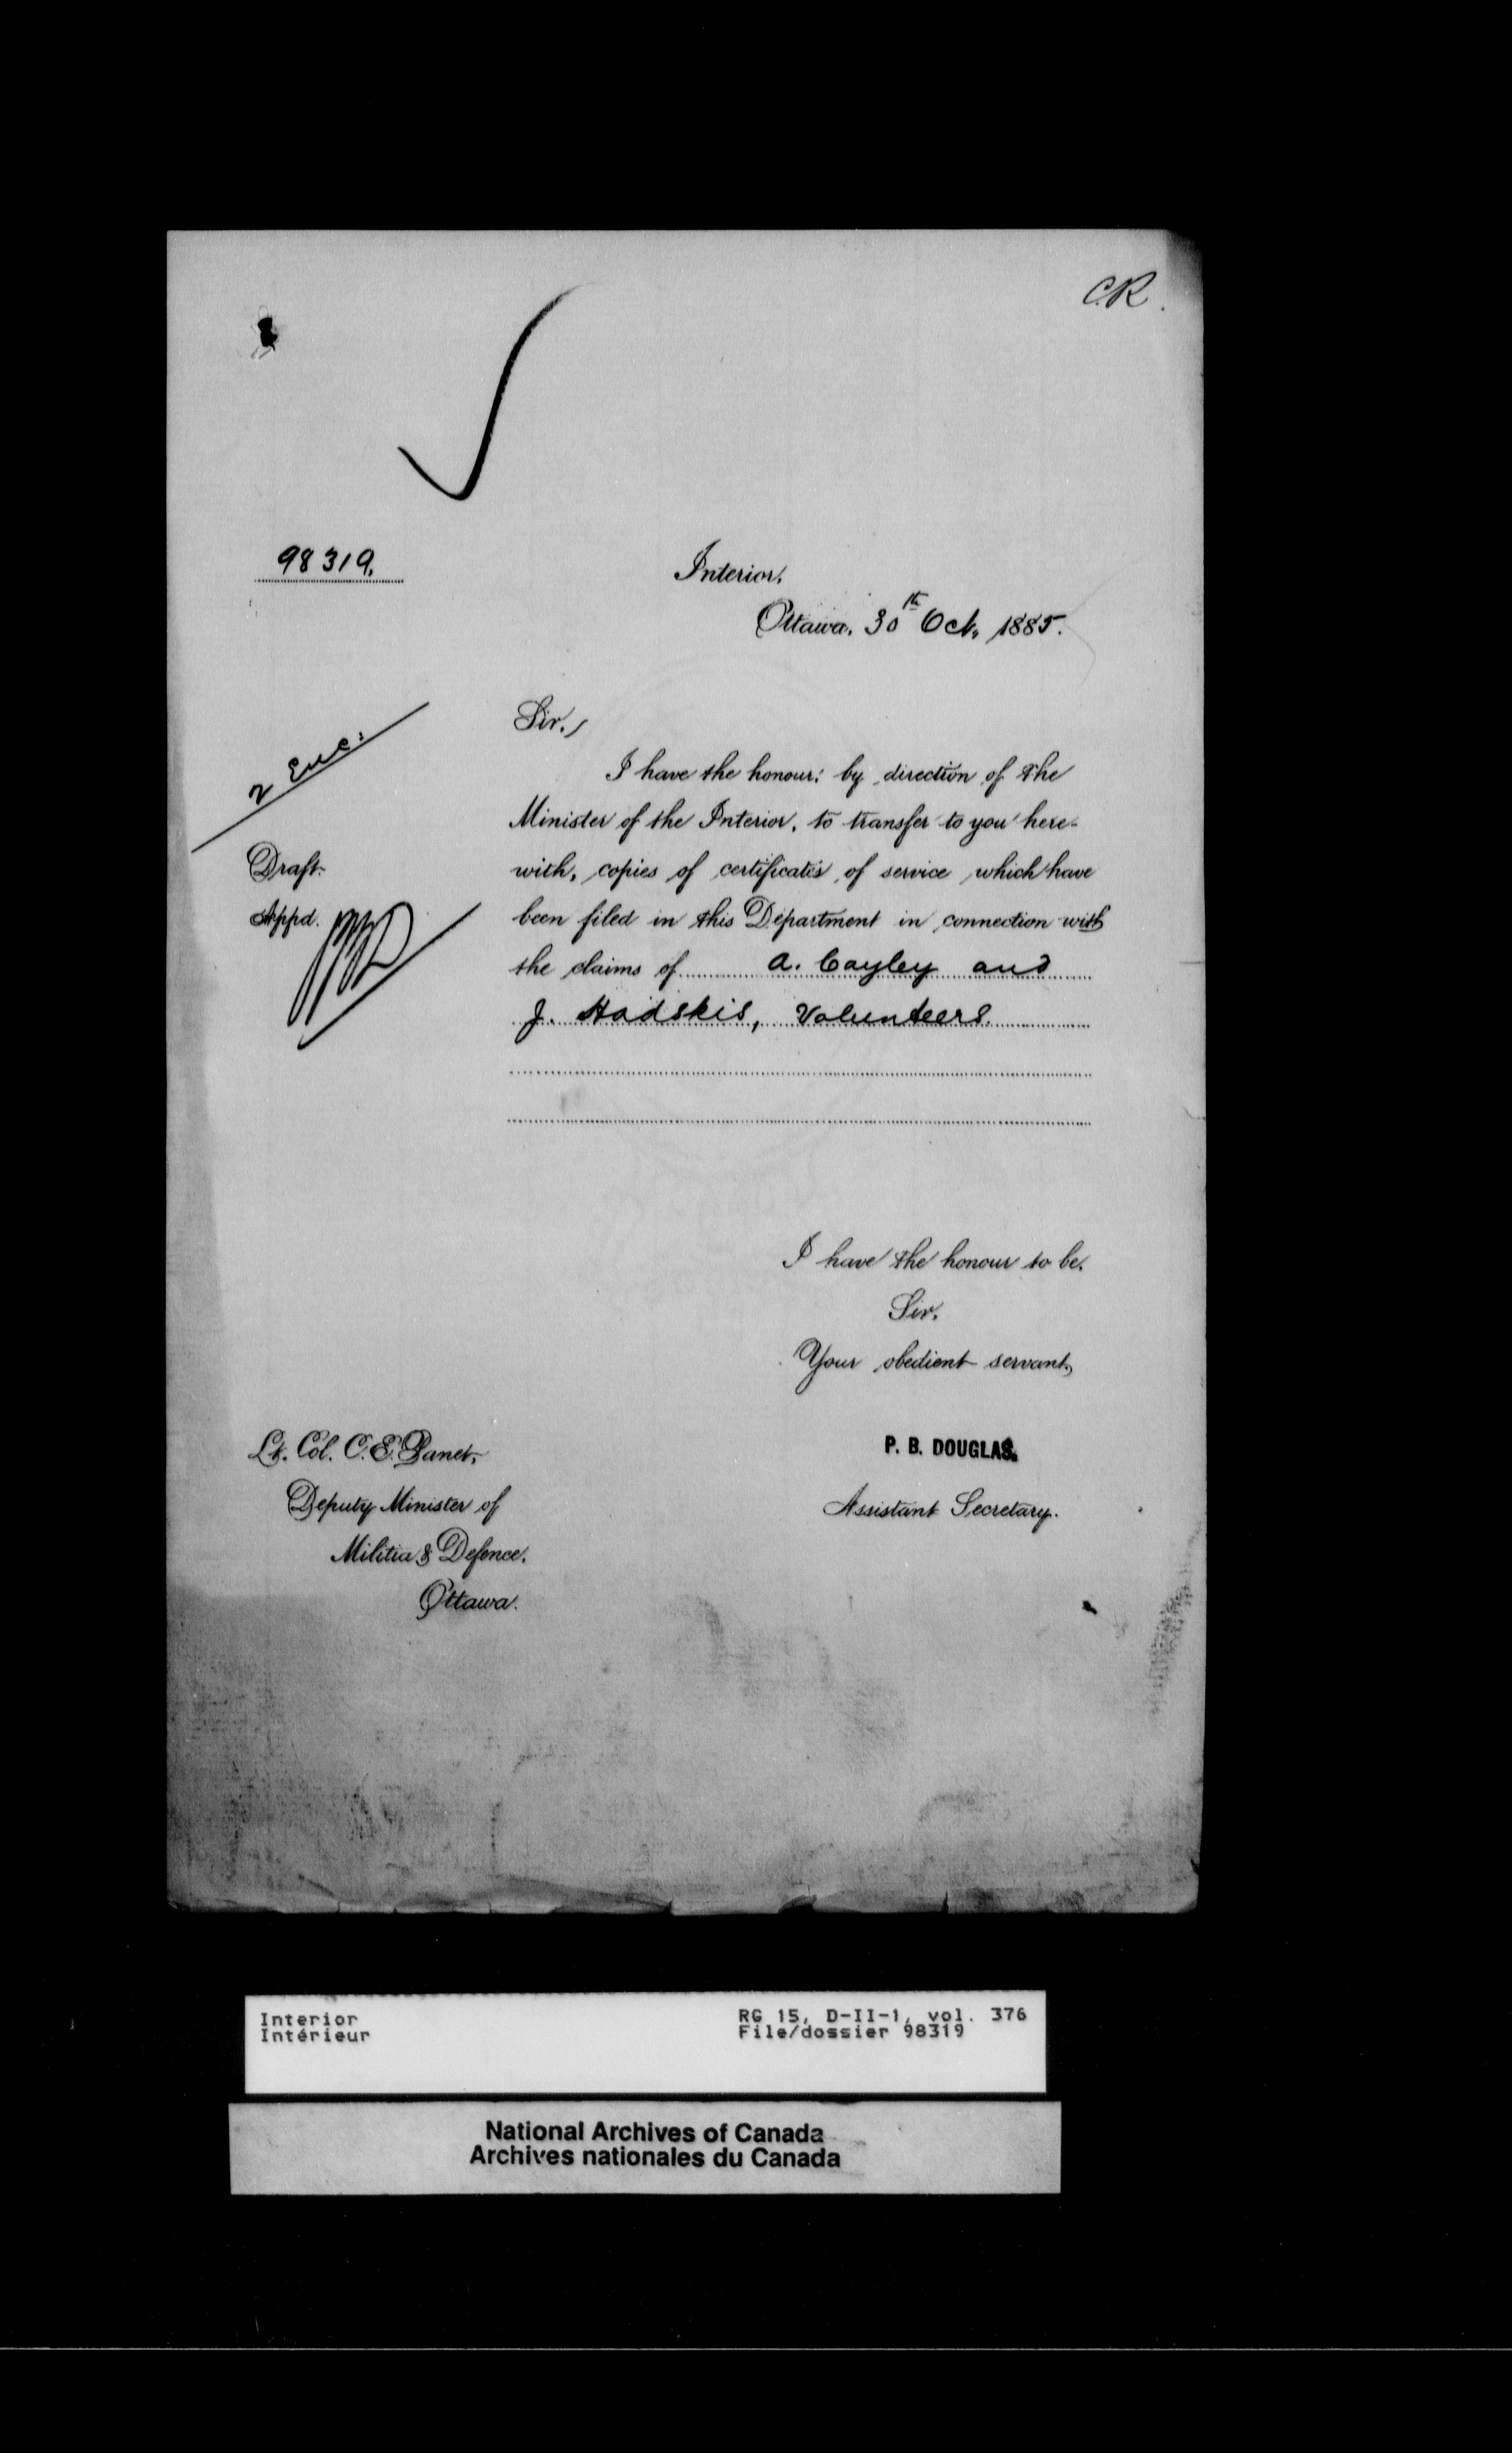 C.R.
98319.
Interior,
Ottawa, 30th Oct, 1885.
2 Enc.
Sir,
I have the honour, by direction of the
Minister of the Interior, to transfer to you here-
with, copies of certificates of service which have
been filed in this Department in connection with
the claims of A. Cayley and
J. Hadskis, Volunteers.
Draft.
Appd.
I have the honour to be,
Sir,
Your obedient servant,
P. B. DOUGLAS.
Assistant Secretary.
Lt. Col. C. E. Panet,
Deputy Minister of
Militia & Defence,
Ottawa.
Interior RG 15, D-II-1, vol. 376
Intérieur File/dossier 98319
National Archives of Canada
Archives nationales du Canada